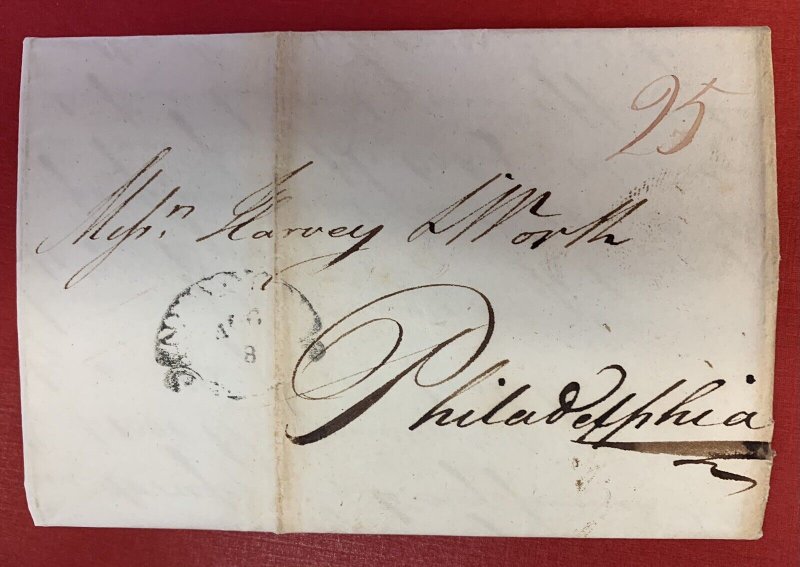 25
Messrs. Harvey & Worth
AUG
8
Philadelphia